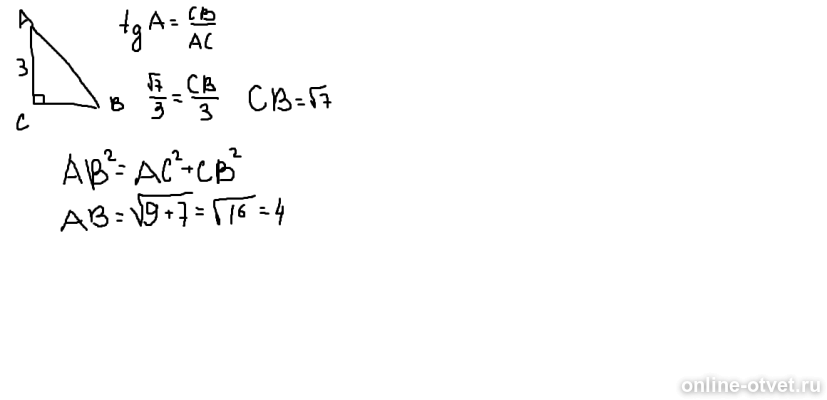 A
3
C
B
tg A = CB/AC
√7/3 = CB/3 CB = √7
AB² = AC² + CB²
AB = √9+7 = √16 = 4
online-otvet.ru